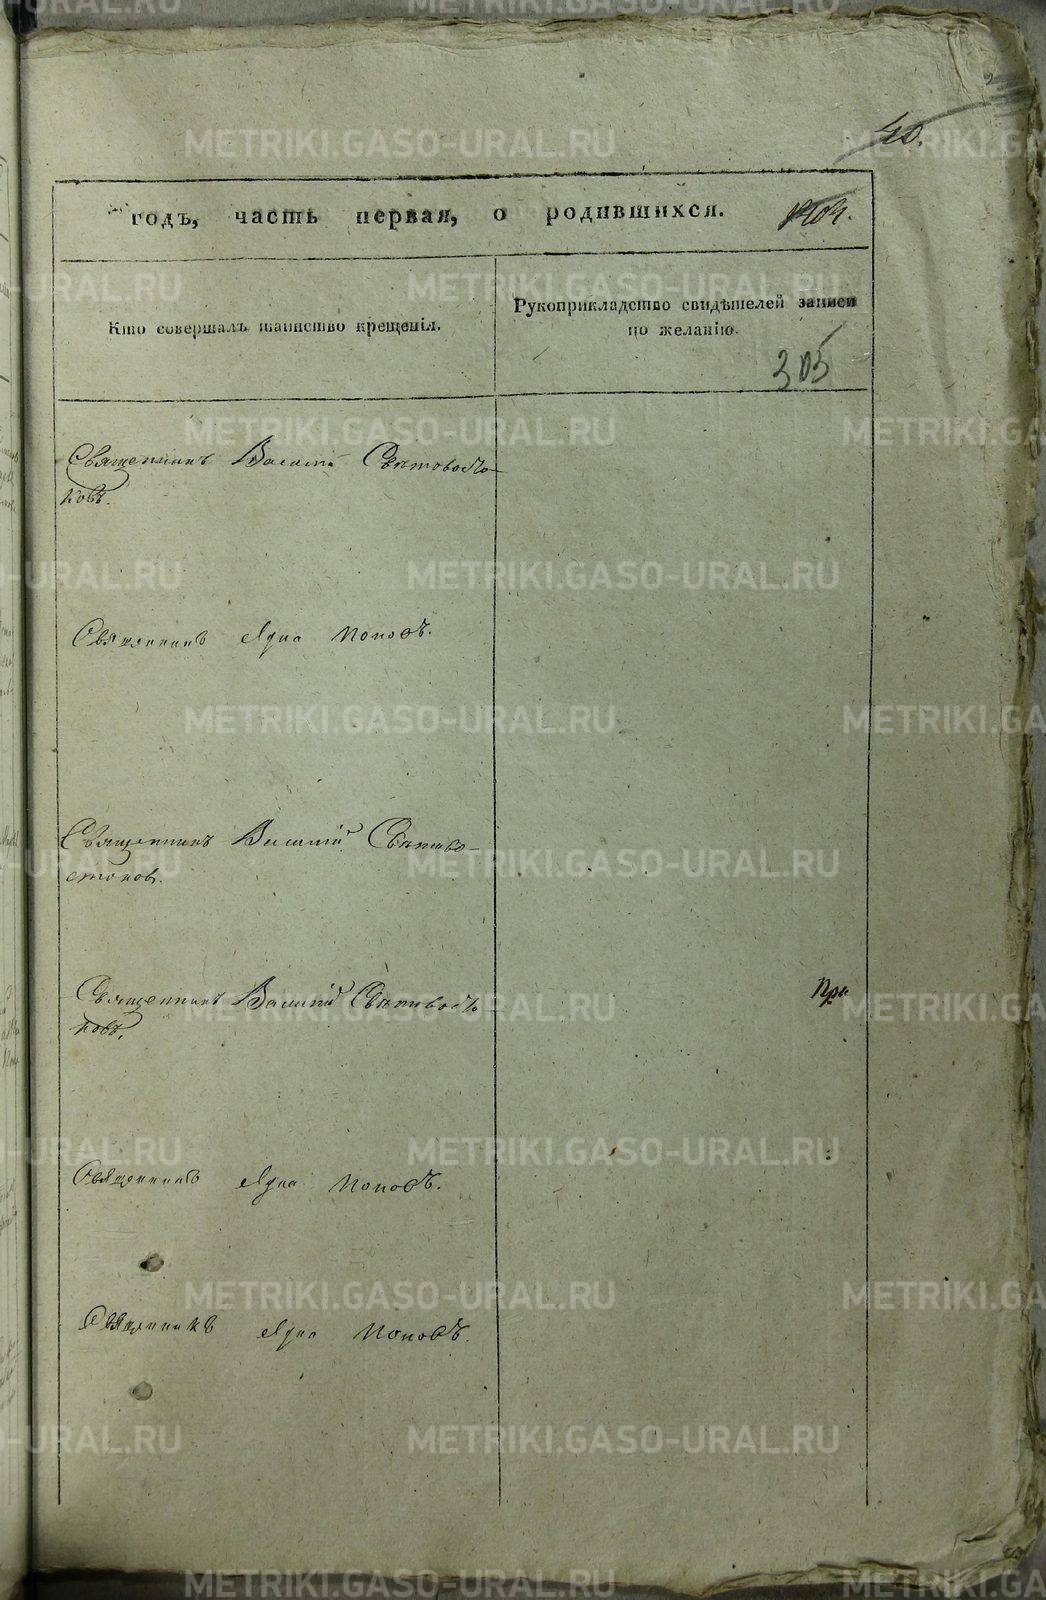 40.
годъ, часть первая, о родившихся.
Кто совершалъ таинство крещенія.
Рукоприкладство свидѣтелей записи
по желанію.
305
Священникъ Василій Свѣтовосто-
ковъ.
Священникъ Поповъ.
Священникъ Василій Свѣтово-
стоковъ.
Священникъ Василій Свѣтовосто-
ковъ.
При
Священникъ Поповъ.
Священникъ Поповъ.
METRIKI.GASO-URAL.RU